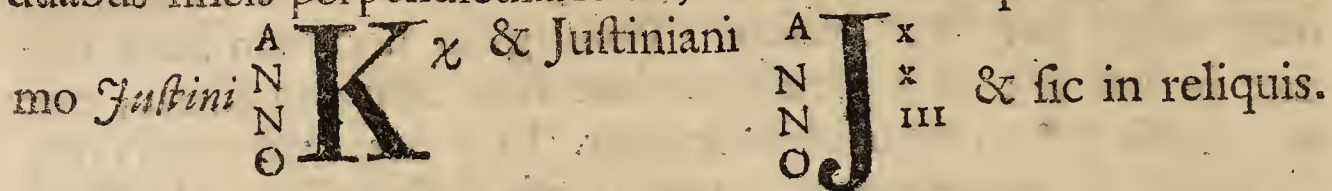 mo Juſtini ANNO K χ & Juſtiniani ANNO J X X III & ſic in reliquis.